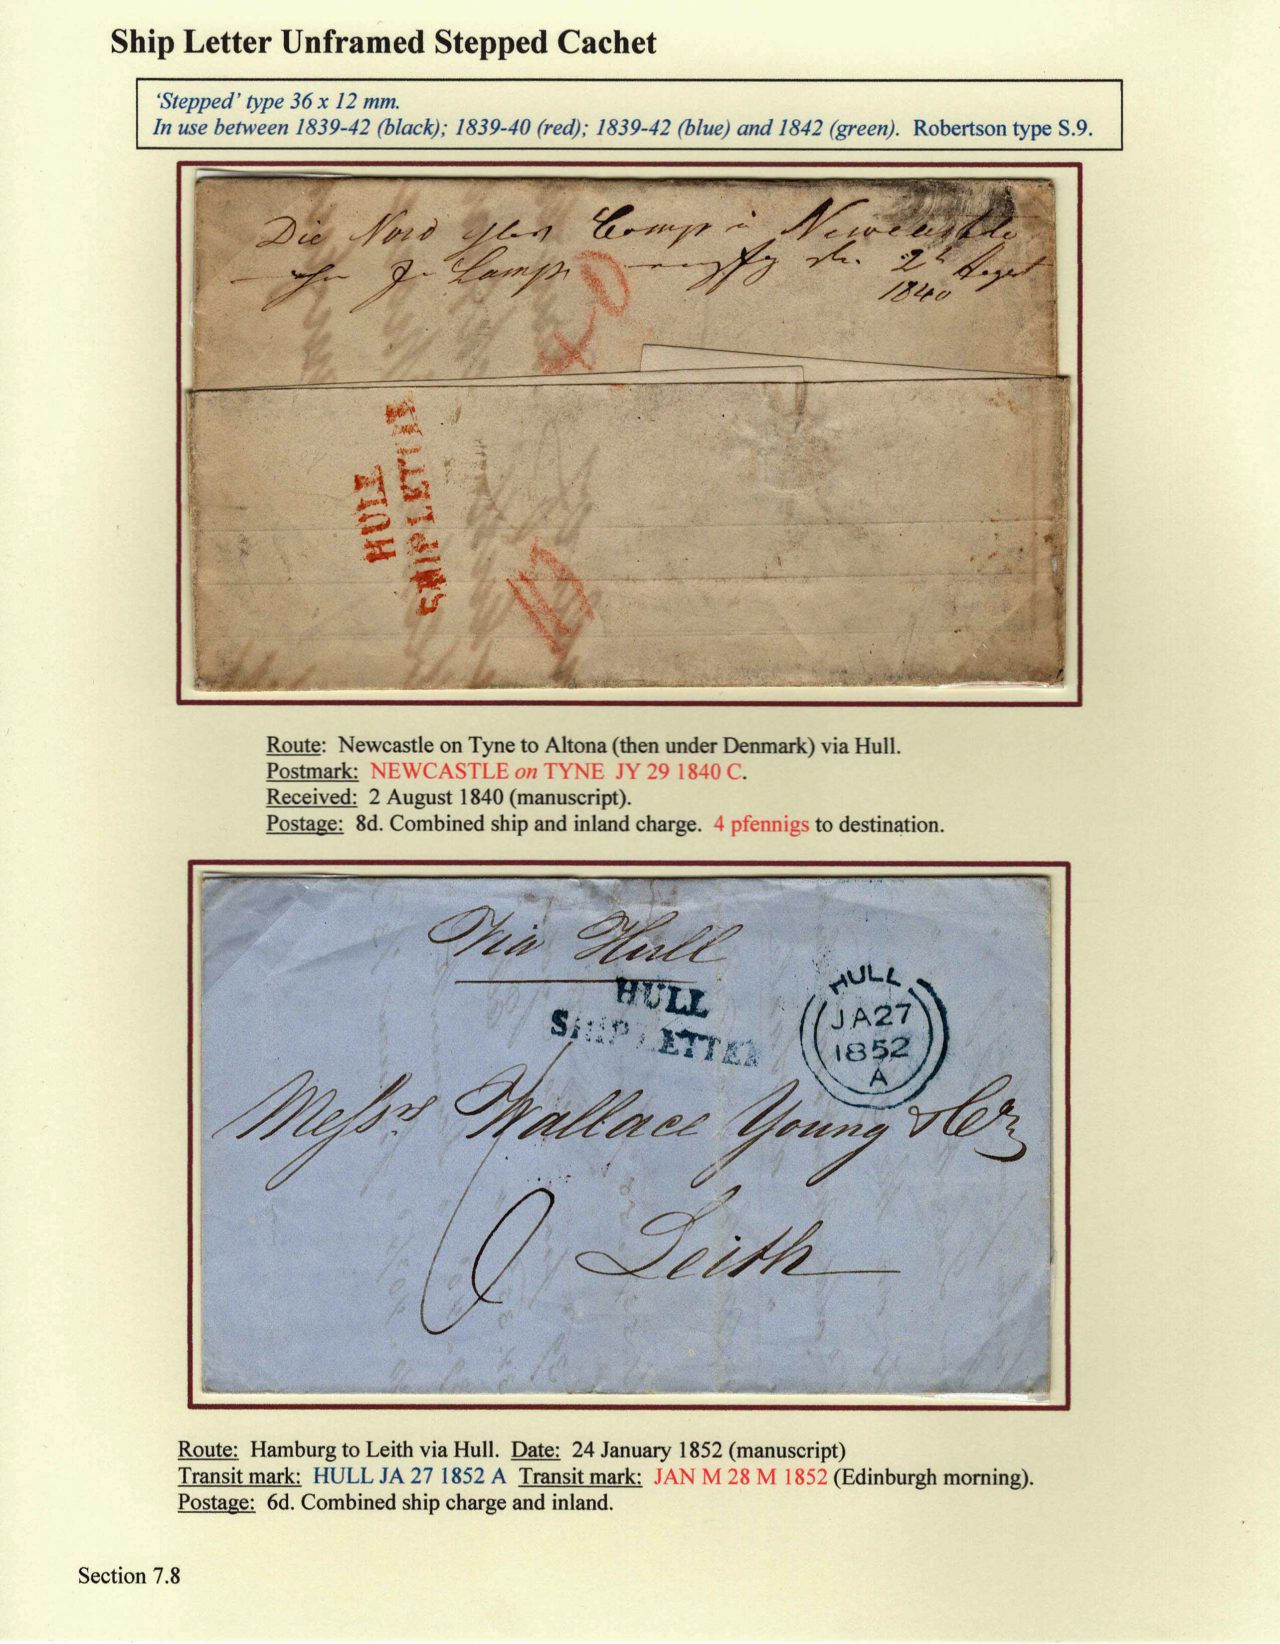 Ship Letter Unframed Stepped Cachet
‘Stepped’ type 36 x 12 mm.
In use between 1839-42 (black); 1839-40 (red); 1839-42 (blue) and 1842 (green). Robertson type S.9.
Die Nord Comp Newcastle
2 August
1840
HULL
SHIP LETTER
Route: Newcastle on Tyne to Altona (then under Denmark) via Hull.
Postmark: NEWCASTLE on TYNE JY 29 1840 C.
Received: 2 August 1840 (manuscript).
Postage: 8d. Combined ship and inland charge. 4 pfennigs to destination.
Via Hull
HULL
SHIP LETTER
HULL
JA 27
1852
A
Messrs Wallace Young & Co
6
Leith
Route: Hamburg to Leith via Hull. Date: 24 January 1852 (manuscript)
Transit mark: HULL JA 27 1852 A Transit mark: JAN M 28 M 1852 (Edinburgh morning).
Postage: 6d. Combined ship charge and inland.
Section 7.8